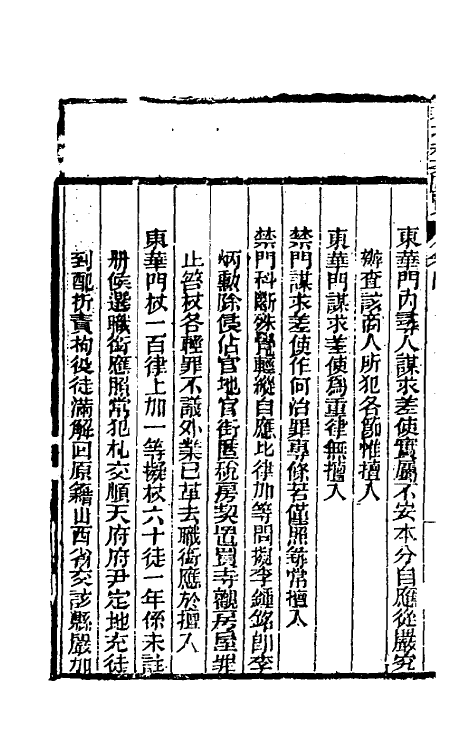 東華門內尋人謀求差使實屬不安本分自應從嚴究
辦查該商人所犯各節惟擅入
東華門謀求差使爲重律無擅入
禁門謀求差使作何治罪專條若僅照尋常擅入
禁門科斷殊覺輕縱自應比律加等問擬李鍾銘卽李
炳勳除侵佔官地官街匿稅房契置買寺觀房屋罪
止笞杖各輕罪不議外業已革去職銜應於擅入
東華門杖一百律上加一等擬杖六十徒一年係未註
册候選職銜應照常犯札交順天府府尹定地充徒
到配折責拘役徒滿解回原籍山西省交該縣嚴加